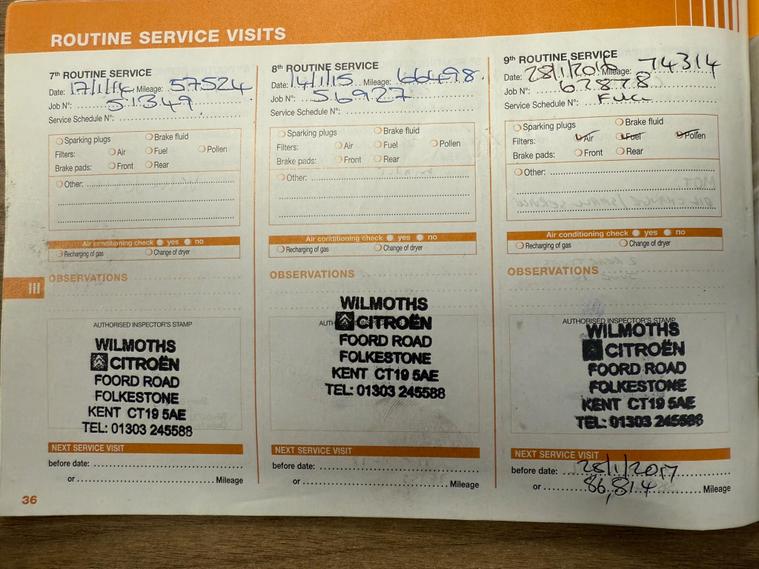 ROUTINE SERVICE VISITS
7th ROUTINE SERVICE
Date: 17/1/14 Mileage: 57524
Job N°: 51349
Service Schedule N°:
Sparking plugs Brake fluid
Filters: Air Fuel Pollen
Brake pads: Front Rear
Other:
Air conditioning check yes no
Recharging of gas Change of dryer
OBSERVATIONS
AUTHORISED INSPECTOR'S STAMP
WILMOTHS
CITROËN
FOORD ROAD
FOLKESTONE
KENT CT19 5AE
TEL: 01303 245588
NEXT SERVICE VISIT
before date:
or Mileage
8th ROUTINE SERVICE
Date: 14/1/15 Mileage: 66498
Job N°: 56927
Service Schedule N°:
Sparking plugs Brake fluid
Filters: Air Fuel Pollen
Brake pads: Front Rear
Other:
Air conditioning check yes no
Recharging of gas Change of dryer
OBSERVATIONS
WILMOTHS
CITROËN
FOORD ROAD
FOLKESTONE
KENT CT19 5AE
TEL: 01303 245588
NEXT SERVICE VISIT
before date:
or Mileage
9th ROUTINE SERVICE
Date: 28/1/2016 Mileage: 74314
Job N°: 62878
Service Schedule N°: FULL
Sparking plugs Brake fluid
Filters: Air Fuel Pollen
Brake pads: Front Rear
Other:
Air conditioning check yes no
Recharging of gas Change of dryer
OBSERVATIONS
AUTHORISED INSPECTOR'S STAMP
WILMOTHS
CITROËN
FOORD ROAD
FOLKESTONE
KENT CT19 5AE
TEL: 01303 245588
NEXT SERVICE VISIT
before date: 28/1/2017
or 86,814 Mileage
III
36